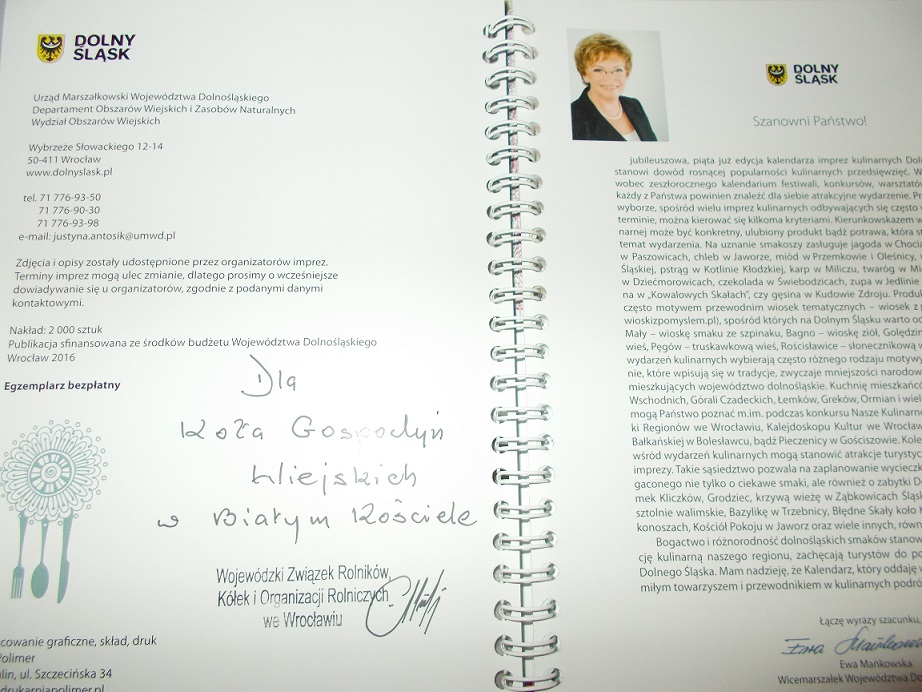 DOLNY
ŚLĄSK
Urząd Marszałkowski Województwa Dolnośląskiego
Departament Obszarów Wiejskich i Zasobów Naturalnych
Wydział Obszarów Wiejskich
Wybrzeże Słowackiego 12-14
50-411 Wrocław
www.dolnyslask.pl
tel. 71 776-93-50
71 776-90-30
71 776-93-98
e-mail: justyna.antosik@umwd.pl
Zdjęcia i opisy zostały udostępnione przez organizatorów imprez.
Terminy imprez mogą ulec zmianie, dlatego prosimy o wcześniejsze
dowiadywanie się u organizatorów, zgodnie z podanymi danymi
kontaktowymi.
Nakład: 2 000 sztuk
Publikacja sfinansowana ze środków budżetu Województwa Dolnośląskiego
Wrocław 2016
Egzemplarz bezpłatny
Dla
Koła Gospodyń
Wiejskich
w Białym Kościele
Wojewódzki Związek Rolników,
Kółek i Organizacji Rolniczych
we Wrocławiu
cowanie graficzne, skład, druk
Polimer
lin, ul. Szczecińska 34
drukarniapolimer.pl
DOLNY
ŚLĄSK
Szanowni Państwo!
jubileuszowa, piąta już edycja kalendarza imprez kulinarnych Doln
stanowi dowód rosnącej popularności kulinarnych przedsięwzięć. W
wobec zeszłorocznego kalendarium festiwali, konkursów, warsztatów
każdy z Państwa powinien znaleźć dla siebie atrakcyjne wydarzenie. Pr
wyborze, spośród wielu imprez kulinarnych odbywających się często w
terminie, można kierować się kilkoma kryteriami. Kierunkowskazem w
narnej może być konkretny, ulubiony produkt bądź potrawa, która st
temat wydarzenia. Na uznanie smakoszy zasługuje jagoda w Choci
w Paszowicach, chleb w Jaworze, miód w Przemkowie i Oleśnicy, w
Śląskiej, pstrąg w Kotlinie Kłodzkiej, karp w Miliczu, twaróg w Mi
w Dziećmorowicach, czekolada w Świebodzicach, zupa w Jedlinie
na w „Kowalowych Skałach”, czy gęsina w Kudowie Zdroju. Produk
często motywem przewodnim wiosek tematycznych – wiosek z p
wioskizpomyslem.pl), spośród których na Dolnym Śląsku warto od
Mały – wioskę smaku ze szpinaku, Bagno – wioskę ziół, Golędzin
wieś, Pęgów – truskawkową wieś, Rościsławice – słonecznikową w
wydarzeń kulinarnych wybierają często różnego rodzaju motywy
nie, które wpisują się w tradycje, zwyczaje mniejszości narodow
mieszkających województwo dolnośląskie. Kuchnię mieszkańcó
Wschodnich, Górali Czadeckich, Łemków, Greków, Ormian i wiel
mogą Państwo poznać m.im. podczas konkursu Nasze Kulinarne
ki Regionów we Wrocławiu, Kalejdoskopu Kultur we Wrocław
Bałkańskiej w Bolesławcu, bądź Pieczenicy w Gościszowie. Kole
wśród wydarzeń kulinarnych mogą stanowić atrakcje turystyc
imprezy. Takie sąsiedztwo pozwala na zaplanowanie wycieczk
gaconego nie tylko o ciekawe smaki, ale również o zabytki Do
mek Kliczków, Grodziec, krzywą wieżę w Ząbkowicach Śląsk
sztolnie walimskie, Bazylikę w Trzebnicy, Błędne Skały koło K
konoszach, Kościół Pokoju w Jaworz oraz wiele innych, równ
Bogactwo i różnorodność dolnośląskich smaków stanow
cję kulinarną naszego regionu, zachęcają turystów do po
Dolnego Śląska. Mam nadzieję, że Kalendarz, który oddaję w
miłym towarzyszem i przewodnikiem w kulinarnych podró
Łączę wyrazy szacunku,
Ewa Mańkowska
Ewa Mańkowska
Wicemarszałek Województwa Do